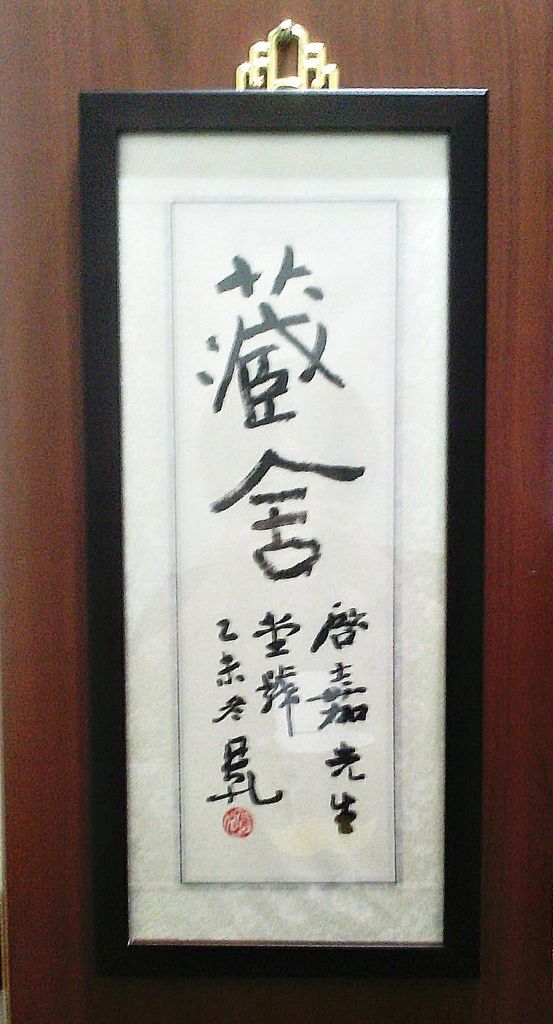 藏舍
啓嘉先生
堂號
乙未冬